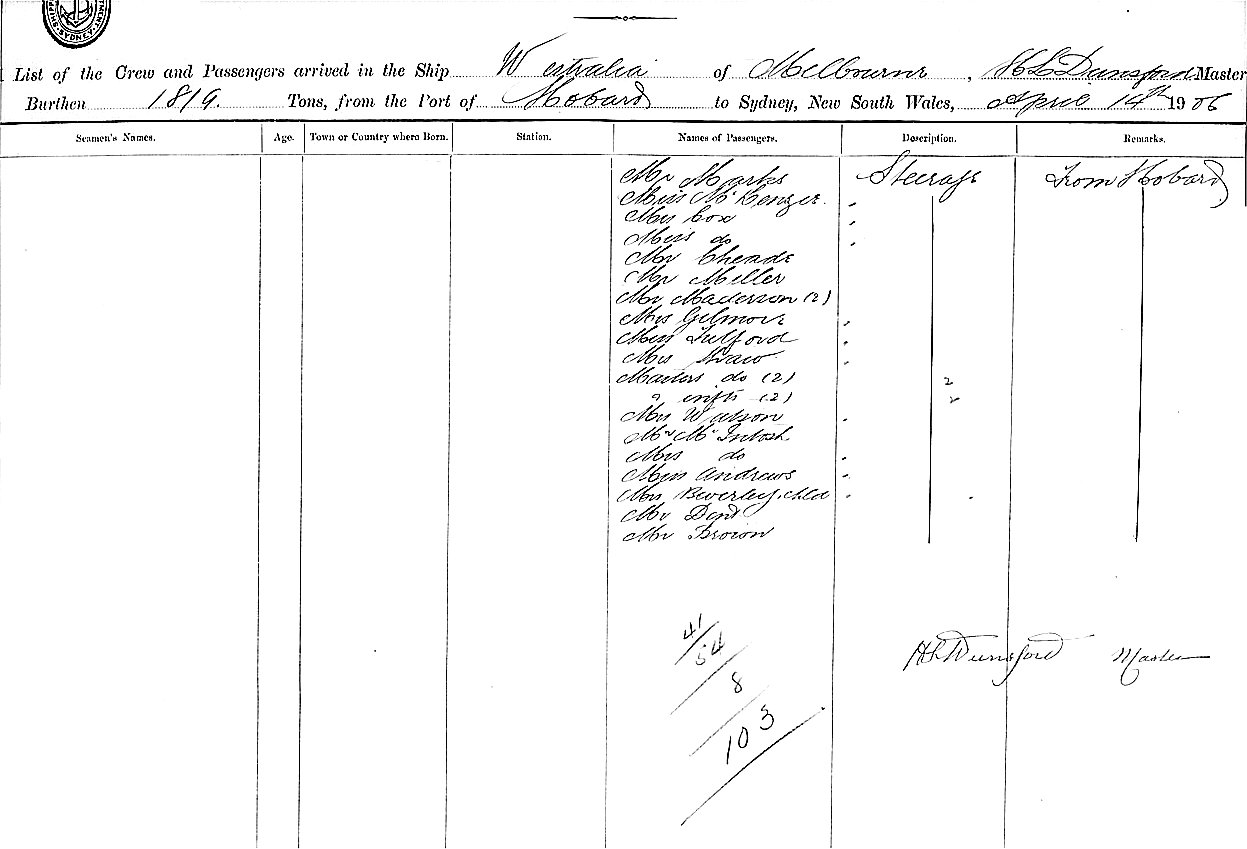 SYDNEY
List of the Crew and Passengers arrived in the Ship Westralia of Melbourne, H L Dunsford Master
Burthen 1819. Tons, from the Port of Hobard to Sydney, New South Wales, April 14th 1906
Seamen's Names. Age. Town or Country where Born. Station. Names of Passengers. Description. Remarks.
Mr Marks Steerage From Hobard
Miss McKenzer. "
Mrs Cox "
Miss do "
Mr Cheade
Mr Miller
Mr Maderson (2)
Mrs Gilmore "
Miss Tulford "
Mrs Shaw "
Masters do (2) 2
" infts (2) 2
Mrs Watson "
Mr McIntosh
Mrs do "
Miss Andrews "
Mrs Beverley "
Mr Dent
Mr Brown
41
54
8
103
H L Dunsford Master